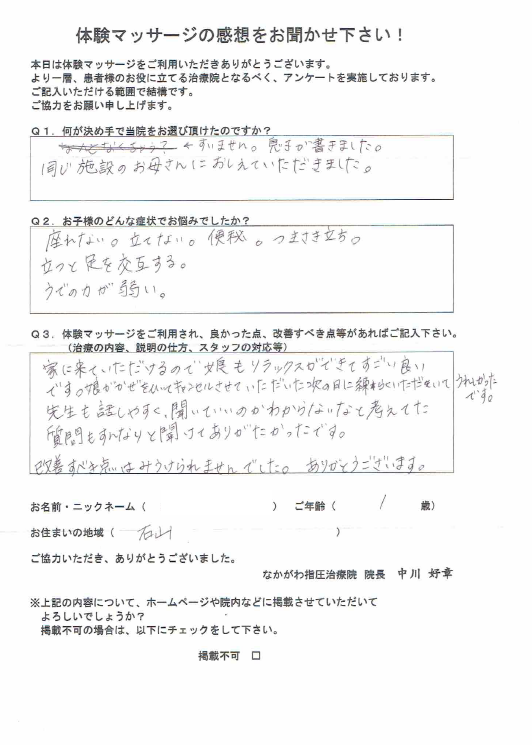 体験マッサージの感想をお聞かせ下さい!
本日は体験マッサージをご利用いただきありがとうございます。
より一層、患者様のお役に立てる治療院となるべく、アンケートを実施しております。
ご記入いただける範囲で結構です。
ご協力をお願い申し上げます。
Q1.何が決め手で当院をお選び頂けたのですか?
なんとなくちゃう? ←すいません。息子が書きました。
同じ施設のお母さんにおしえていただきました。
Q2.お子様のどんな症状でお悩みでしたか?
座れない。立てない。便秘。つまさき立ち。
立つと足を交互する。
うでの力が弱い。
Q3.体験マッサージをご利用され、良かった点、改善すべき点等があればご記入下さい。
(治療の内容、説明の仕方、スタッフの対応等)
家に来ていただけるので娘もリラックスができてすごい良い
です。娘がかぜをひいてキャンセルさせていただいた次の日に いただいて うれしかったです。
先生も話しやすく、聞いていいのかわからないなと考えてた
質問もすんなりと聞けてありがたかったです。
改善すべき点はみうけられませんでした。ありがとうございます。
お名前・ニックネーム( ) ご年齢( 1 歳)
お住まいの地域( 石山 )
ご協力いただき、ありがとうございました。
なかがわ指圧治療院 院長 中川 好章
※上記の内容について、ホームページや院内などに掲載させていただいて
よろしいでしょうか?
掲載不可の場合は、以下にチェックをして下さい。
掲載不可 □